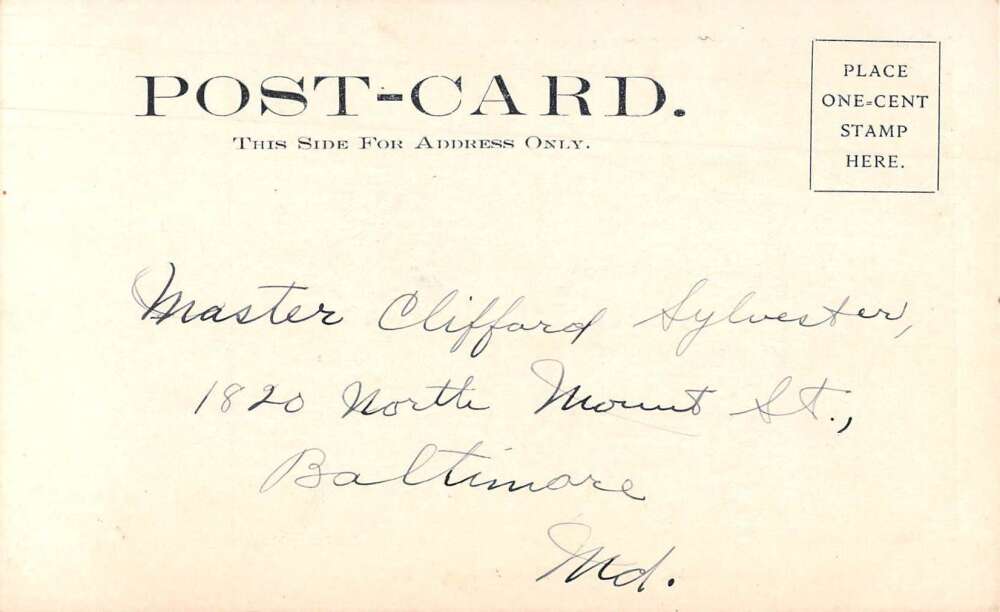 POST-CARD.
THIS SIDE FOR ADDRESS ONLY.
PLACE
ONE-CENT
STAMP
HERE.
Master Clifford Sylvester,
1820 North Mount St.,
Baltimore
Md.